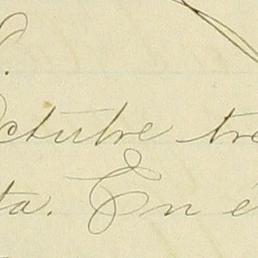 Octubre tre
ta. En é